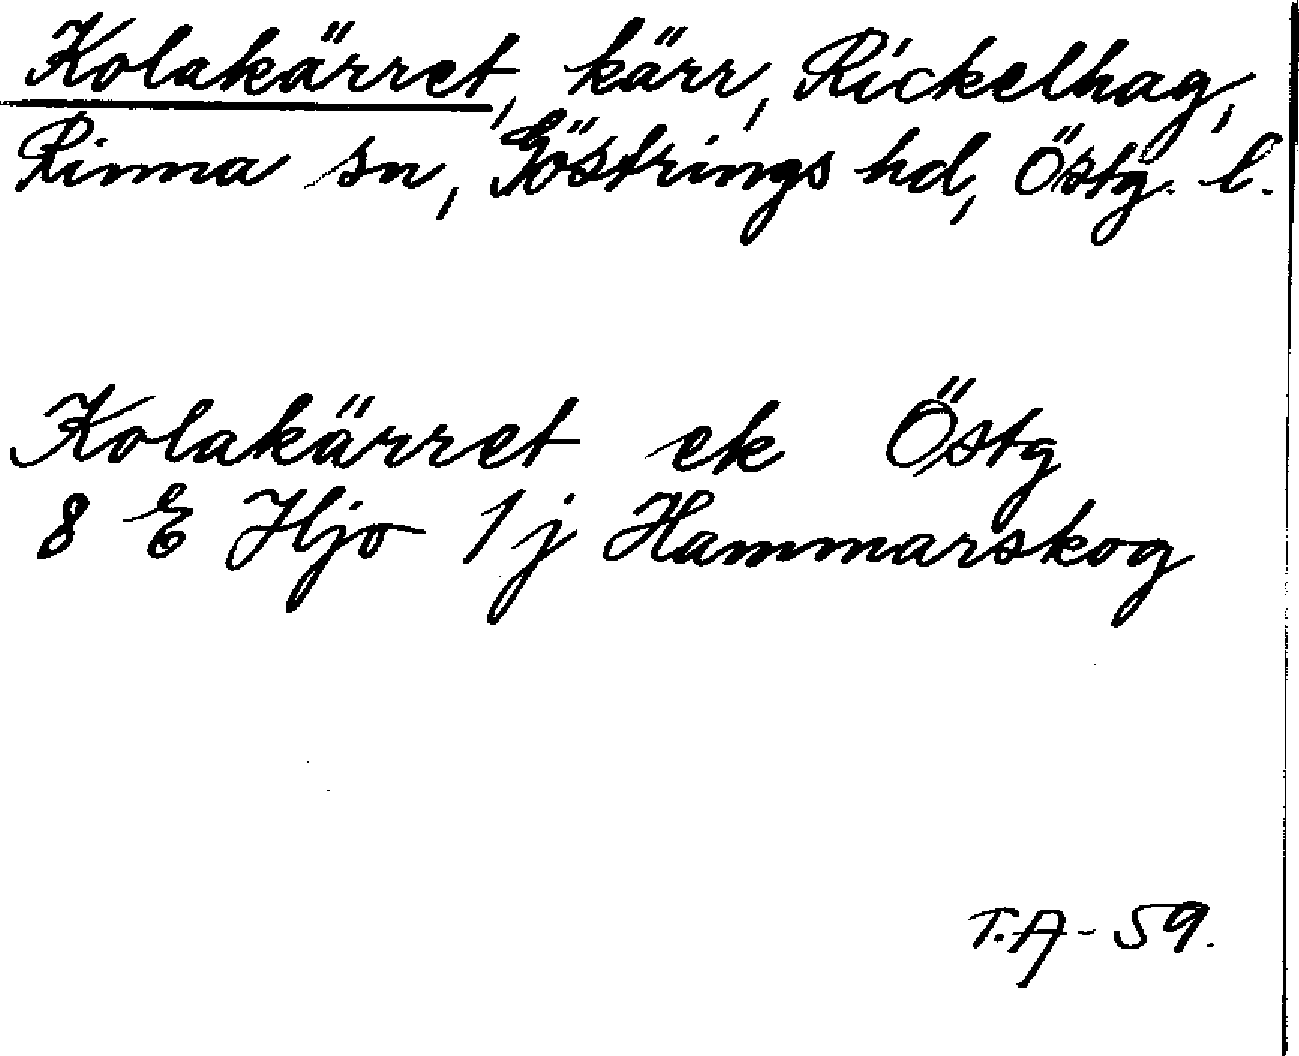 Kolakärret, kärr, Rickelhag,
Rinna sn, Göstrings hd, Östg. l.
Kolakärret ek Östg
8 E Hjo 1j Hammarskog
T.A-59.